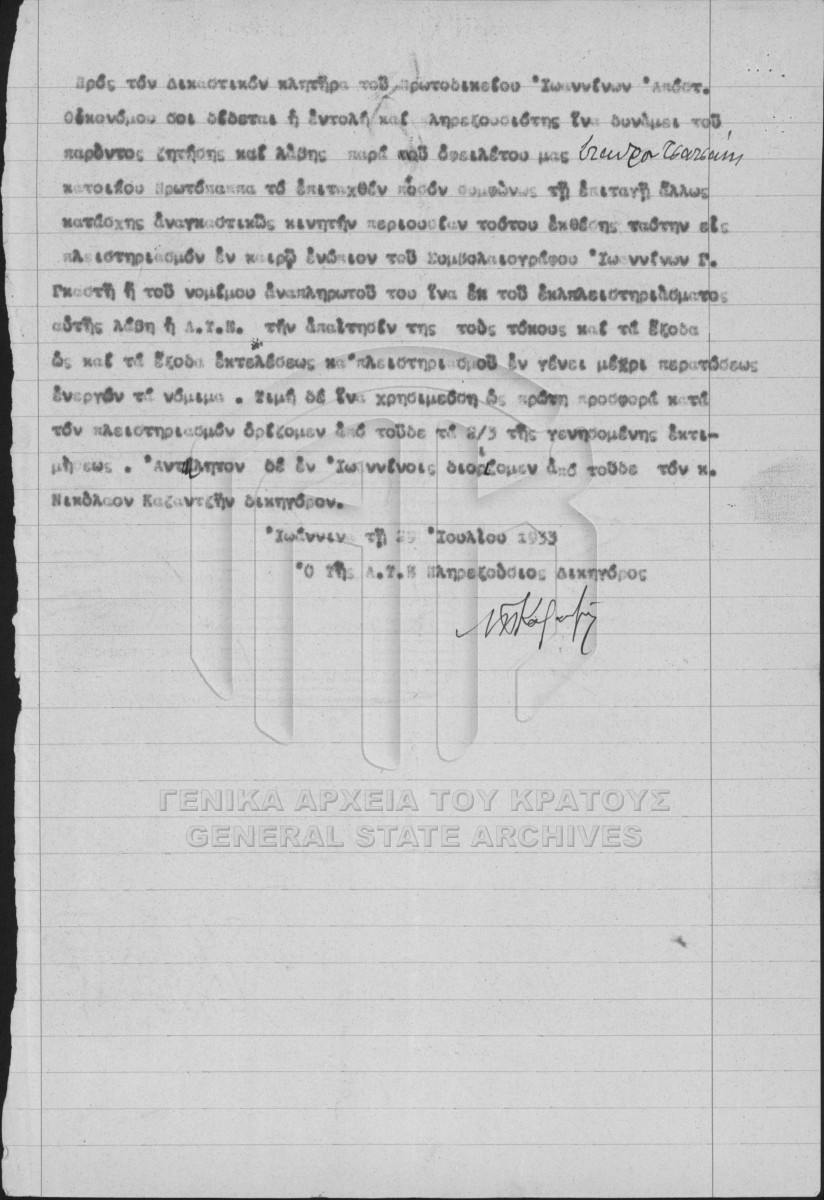 Πρός τόν Δικαστικόν κλητῆρα τοῦ Πρωτοδικείου Ἰωαννίνων Ἀπόστ.
Οἰκονόμου σοι δίδεται ἡ ἐντολή καί πληρεξουσιότης ἵνα δυνάμει τοῦ
παρόντος ζητήσης καί λάβης παρά τοῦ ὀφειλέτου μας Σταύρο Τσατσάκη
κατοίκου Πρωτόπαππα τό ἐπιταχθέν ποσόν συμφώνως τῇ ἐπιταγῇ ἄλλως
κατάσχης ἀναγκαστικῶς κινητήν περιουσίαν τούτου ἐκθέσης ταύτην εἰς
πλειστηριασμόν ἐν καιρῷ ἐνώπιον τοῦ Συμβολαιογράφου Ἰωαννίνων Γ.
Γκαστῆ ἤ τοῦ νομίμου ἀναπληρωτοῦ του ἵνα ἐκ τοῦ ἐκλπλειστηριάσματος
αὐτῆς λάβη ἡ Α.Τ.Ε. τήν ἀπαίτησίν της τούς τόκους καί τά ἔξοδα
ὡς καί τά ἔξοδα ἐκτελέσεως κα πλειστηριασμοῦ ἐν γένει μέχρι περατώσεως
ἐνεργῶν τά νόμιμα . Τιμή δέ ἵνα χρησιμεύση ὡς πρώτη προσφορά κατά
τόν πλειστηριασμόν ὁρίζομεν ἀπό τοῦδε τά 2/3 τῆς γενησομένης ἐκτι-
μήσεως . Ἀντίκλητον δέ ἐν Ἰωαννίνοις διορίζομεν ἀπό τοῦδε τόν κ.
Νικόλαον Καζαντζῆν δικηγόρον.
Ἰωάννινα τῇ 29 Ἰουλίου 1933
Ὁ Τῆς Α.Τ.Ε Πληρεξούσιος Δικηγόρος
ΓΕΝΙΚΑ ΑΡΧΕΙΑ ΤΟΥ ΚΡΑΤΟΥΣ
GENERAL STATE ARCHIVES